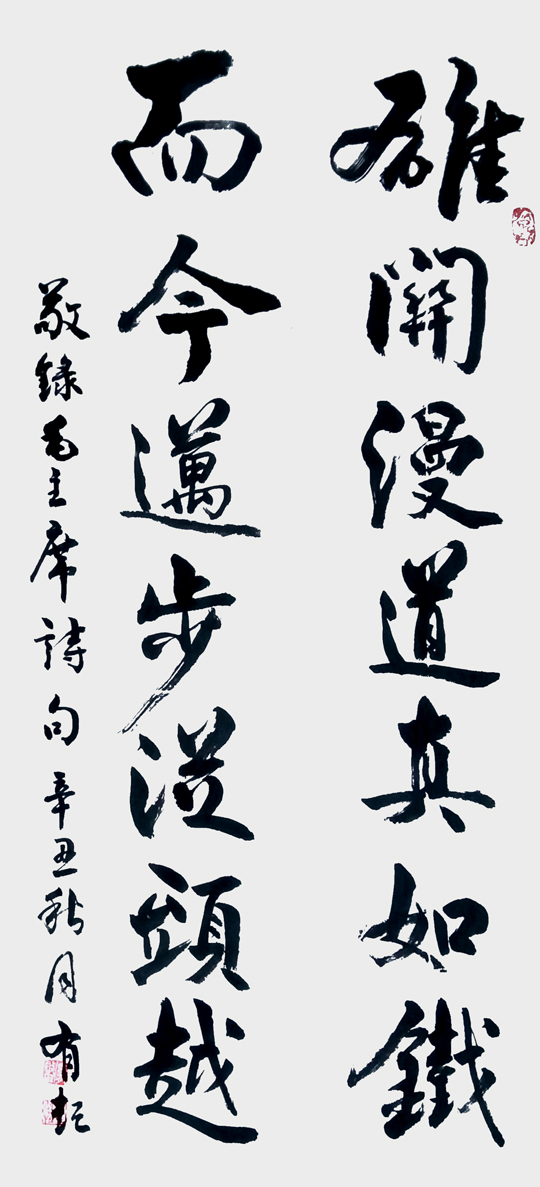 雄關漫道真如鐵
而今邁步從頭越
敬錄毛主席詩句 辛丑秋月 有